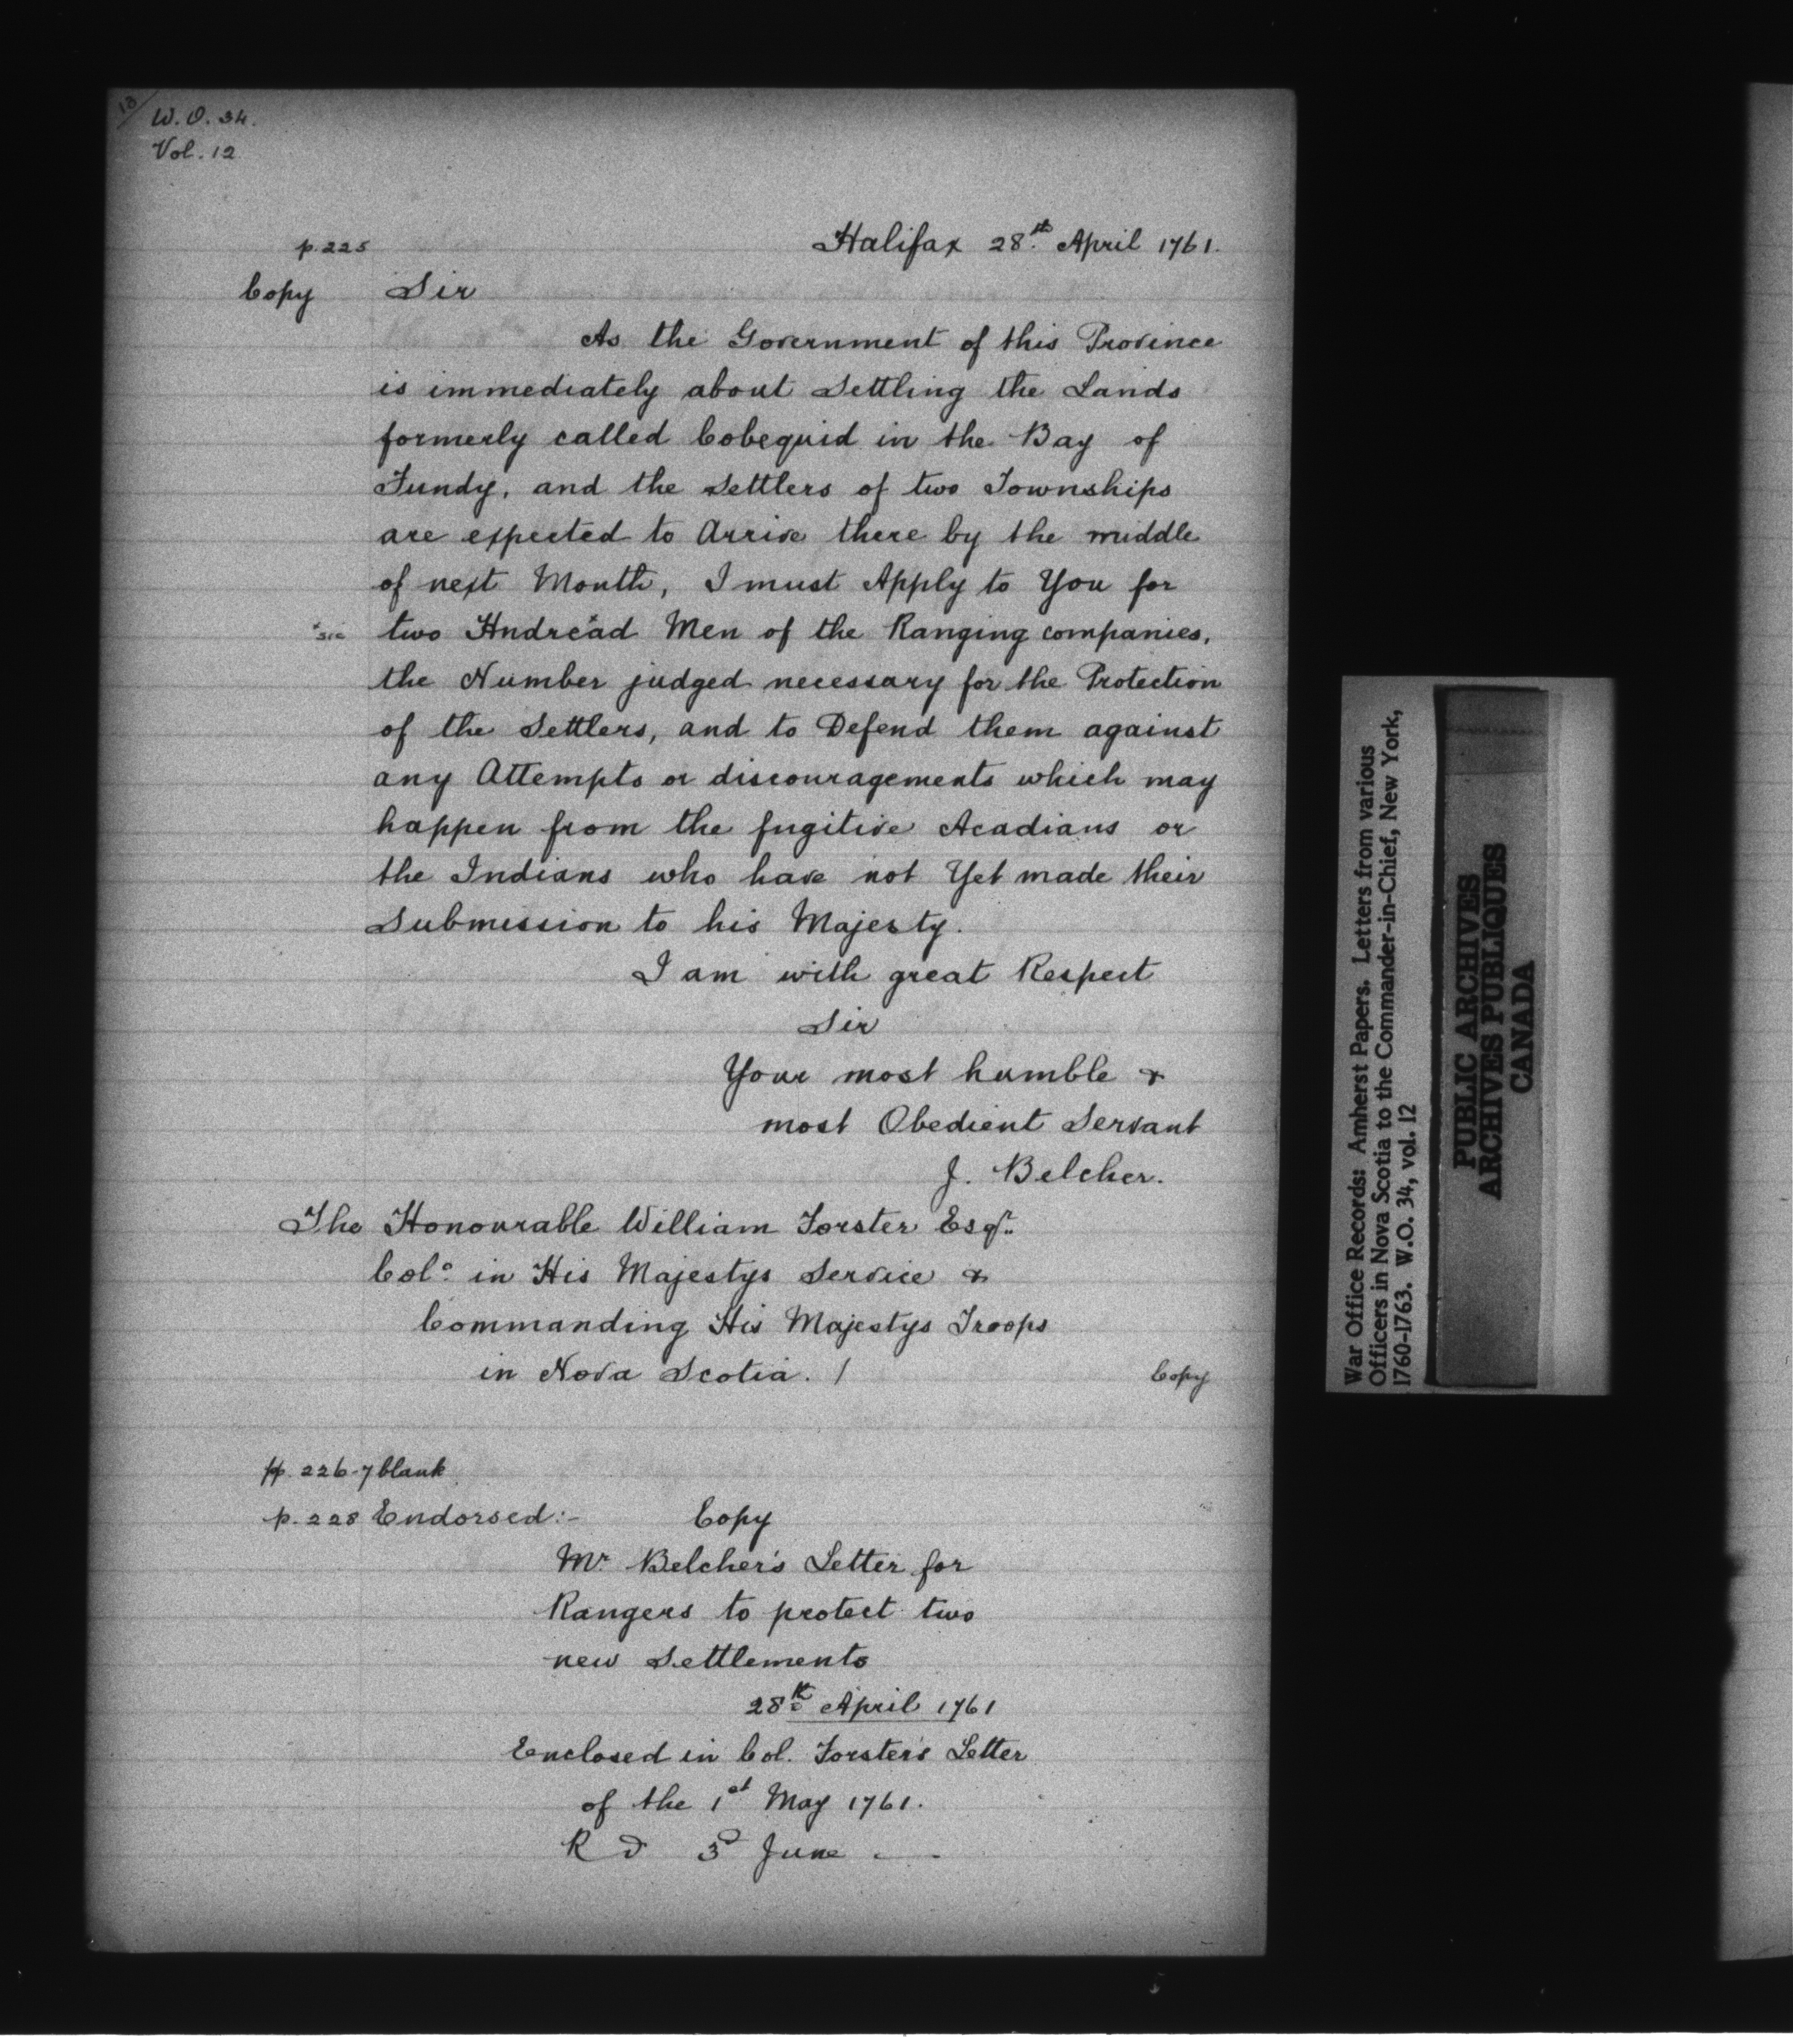 18/
W.O. 34.
Vol. 12
p. 225
Halifax 28.th April 1761.
Copy Sir
As the Government of this Province
is immediately about Settling the Lands
formerly called Cobequid in the Bay of
Fundy, and the Settlers of two Townships
are expected to Arrive there by the middle
of next Month, I must Apply to You for
*sic two Hndre*ad Men of the Ranging companies,
the Number judged necessary for the Protection
of the Settlers, and to Defend them against
any Attempts or discouragements which may
happen from the fugitive Acadians or
the Indians who have not Yet made their
Submission to his Majesty.
I am with great Respect
Sir
Your most humble &
most Obedient Servant
J. Belcher.
The Honourable William Forster Esqr.
Colo. in His Majestys Service &
Commanding His Majestys Troops
in Nova Scotia. /
Copy
pp. 226-7 blank
p. 228 Endorsed:- Copy
Mr. Belcher's Letter for
Rangers to protect two
new Settlements
28th April 1761
Enclosed in Col. Forster's Letter
of the 1st May 1761.
R d 3d June . -
War Office Records: Amherst Papers. Letters from various
Officers in Nova Scotia to the Commander-in-Chief, New York,
1760-1763. W.O. 34, vol. 12
PUBLIC ARCHIVES
ARCHIVES PUBLIQUES
CANADA